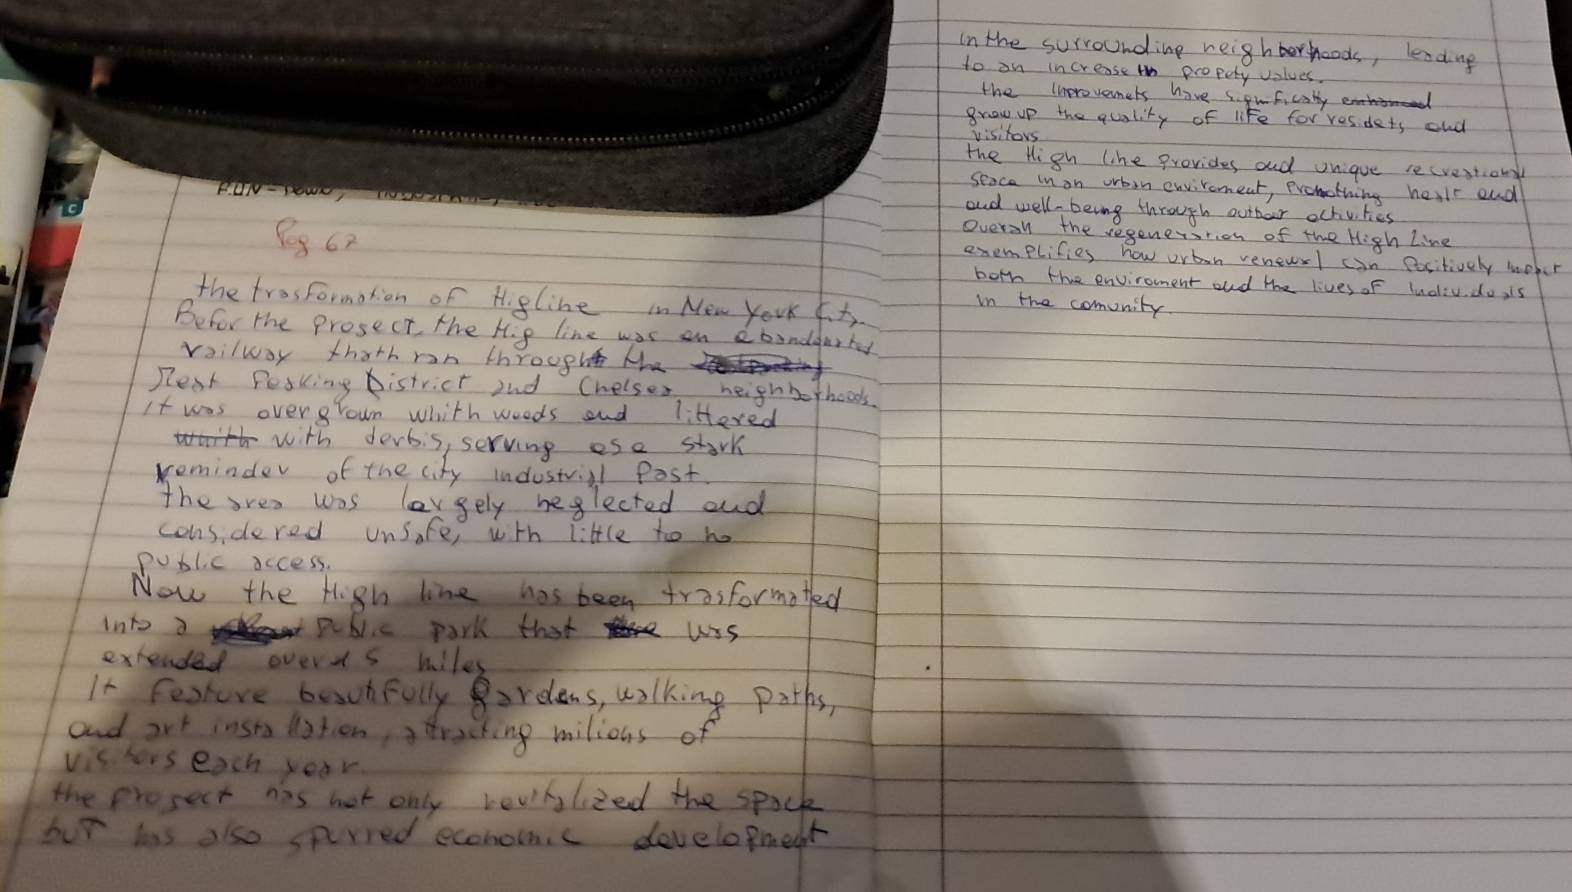 Pag 67
the trasformation of Higline in New York City.
Befor the prosect, the Hig line was an abandoarted
railway thath ran through the
Meat Peaking District and Chelsea neighborhoods.
it was overgrown whith weeds and littered
whith with derbis, serving as a stark
reminder of the city industrial Past.
the area was largely neglected and
considered unsafe, with little to no
public access.
Now the High line has been trasformated
into a public park that was
extended over 5 miles
It feature beautifully gardens, walking paths,
and art installation, attracting milions of
visitors each year.
the prosect has not only revitalized the space
but has also spurred economic development
in the surrounding neighborhoods, leading
to an increase in propety values.
the improvemets have significatly enhanced
grow up the quality of life for residets and
visitors
the High line provides and unique recreational
space in an urban enviroment, promothing healt and
and well-being through outboor activities
Overall the regeneration of the High Line
exemplifies how urban renewal can positively impact
both the enviroment and the lives of individuals
in the comunity.